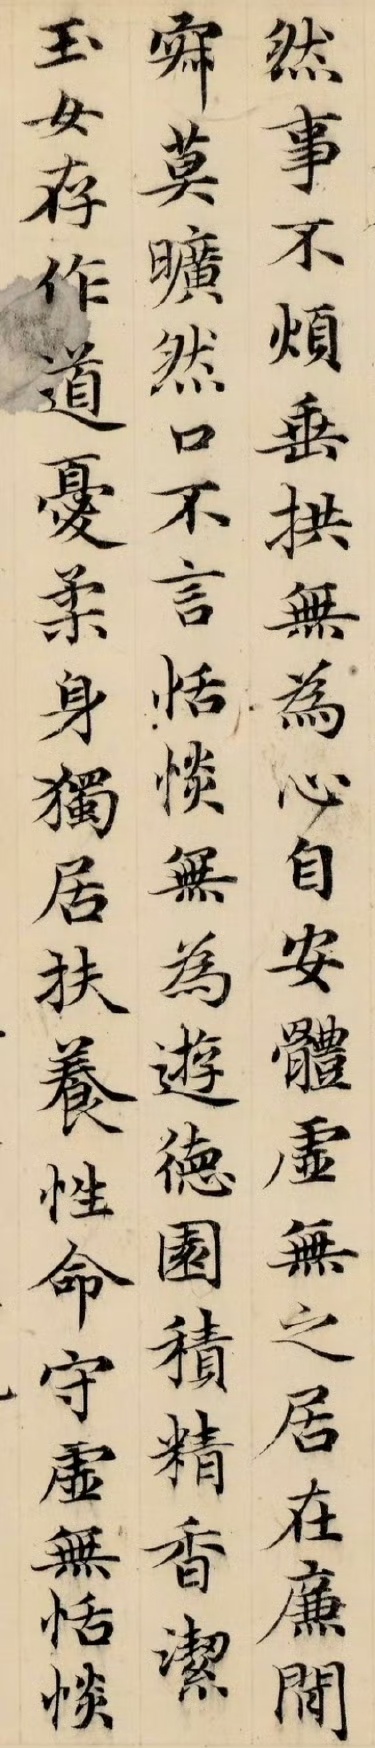 然事不煩垂拱無為心自安體虛無之居在廉間
寂莫曠然口不言恬惔無為遊德園積精香潔
玉女存作道憂柔身獨居扶養性命守虛無恬惔